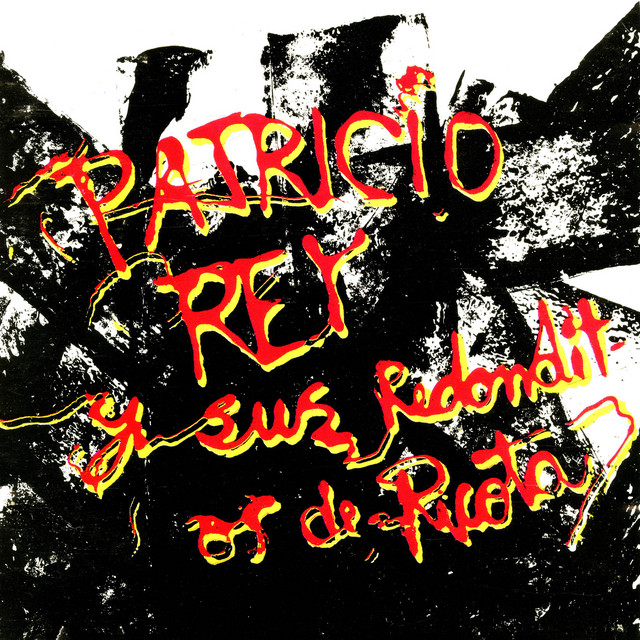 PATRICIO
REY
y sus Redondit-
os de Ricota